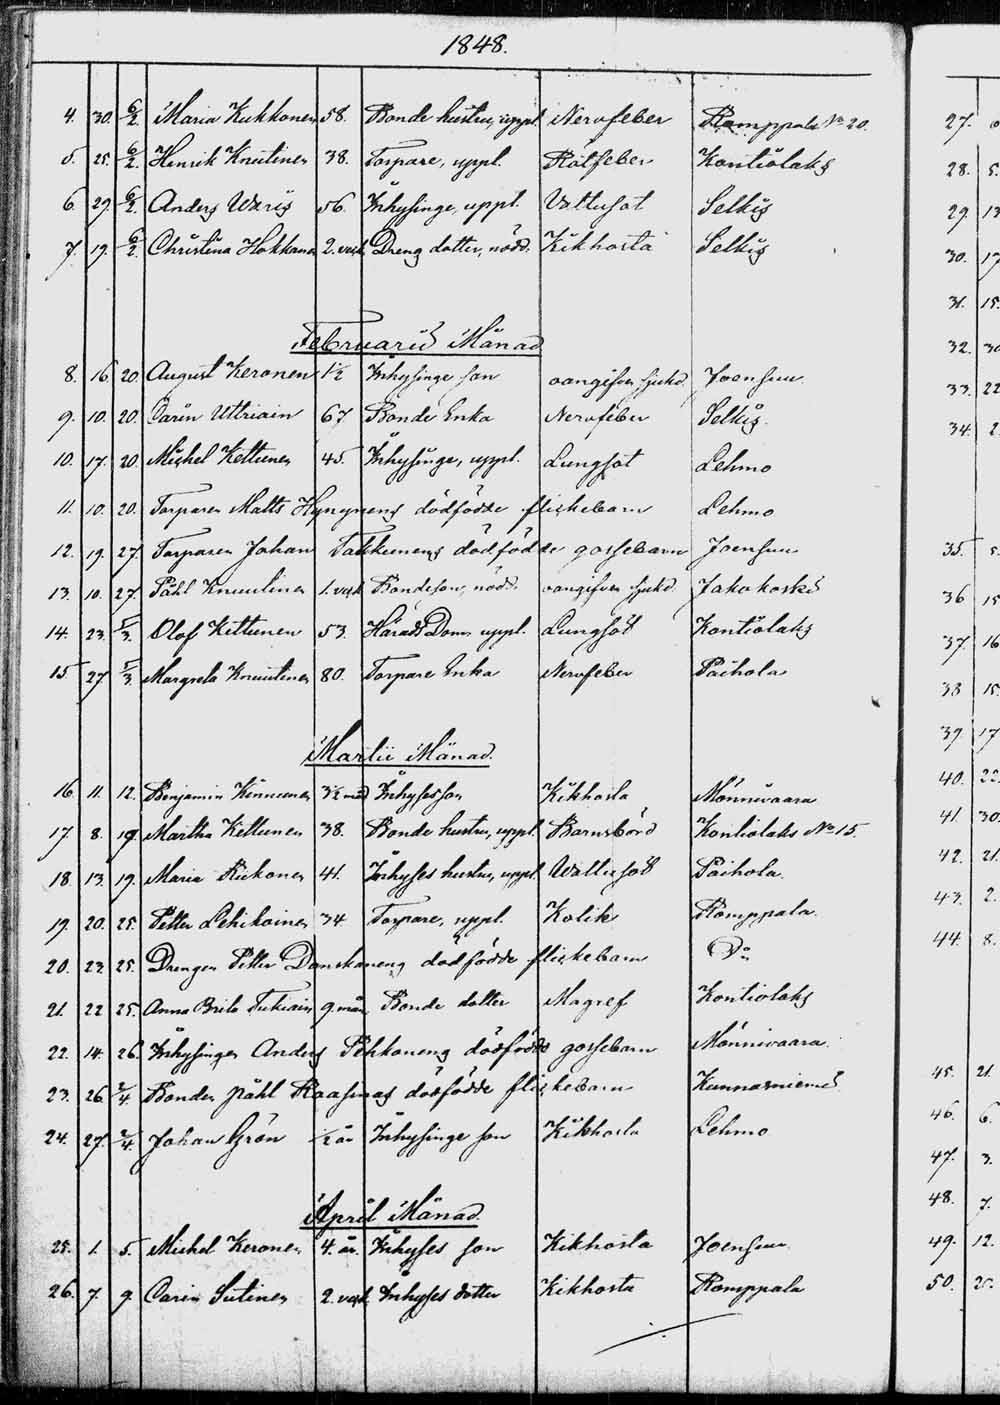 1848.
4. 30. 6/2. Maria Kukkonen 58. Bonde hustru, uppl. Nervfeber Romppala No 20.
5. 25. 6/2. Henrik Knutinen 38. Torpare, uppl. Rötfeber Kontiolaks
6. 29. 6/2. Anders Waris 56. Inhysinge, uppl. Vattusot Selkis
7. 19. 6/2. Christina Hokkanen 2. veck Dreng dotter, nödd. Kikhosta Selkis
Februarii Månad
8. 16. 20. August Keronen 1½ Inhysinge son oangifven sjukd. Joensuu
9. 10. 20. Carin Uttriain 67 Bonde Enka Nervfeber Selkis.
10. 17. 20. Michel Kettunen 45. Inhysinge, uppl. Lungsot Lehmo
11. 10. 20. Torparen Matts Hynynens dödfödde flickebarn Lehmo
12. 19. 27. Torparen Johan Takkunens dödfödde gossebarn Joensuu
13. 10. 27. Påhl Knuutinen 1. veck Bondeson, nödd. oangifven sjukd. Jakokoski
14. 23. 5/3. Olof Kettunen 53. Härads Dom. uppl. Lungsot Kontiolaks
15. 27 5/3. Margreta Knuutinen 80. Torpare Enka Nervfeber Paihola
Martii Månad.
16. 11. 12. Benjamin Kinnunen 3½ mån Inhysesson Kikhosta Mönnivaara
17. 8. 19. Martha Kettunen 38. Bonde hustru, uppl. Barnsbörd Kontiolaks No 15.
18. 13. 19. Maria Riikonen 41. Inhyses hustru, uppl. Wattusot Paihola.
19. 20. 25. Petter Lehikoinen 34 Torpare, uppl. Kolik Romppala.
20. 23. 25. Drengen Petter Danskanens dödfödde flickebarn Do
21. 22 25. Anna Brita Tukiain 9. mån Bonde dotter Magref Kontiolaks
22. 14. 26. Inhysingen Anders Pehkonens dödfödde gossebarn Mönnivaara.
23. 26. 2/4. Bonden Påhl Raasinas dödfödde flickebarn Kunnasniemi
24. 27. 2/4. Johan Grön ½ år Inhysinge son Kikhosta Lehmo
April Månad.
25. 1. 5. Michel Keronen 4. år. Inhyses son Kikhosta Joensuu
26. 7. 9. Carin Sutinen 2. veck Inhyses dotter Kikhosta Romppala
27.
28. 5.
29. 13
30. 17
31. 15.
32. 30
33. 22
34. 2
35. 5.
36 15
37. 16
38 15.
39. 17
40. 22.
41. 30.
42. 21.
43. 2.
44. 8.
45. 21.
46. 6.
47. 3.
48. 7.
49. 12.
50. 20.